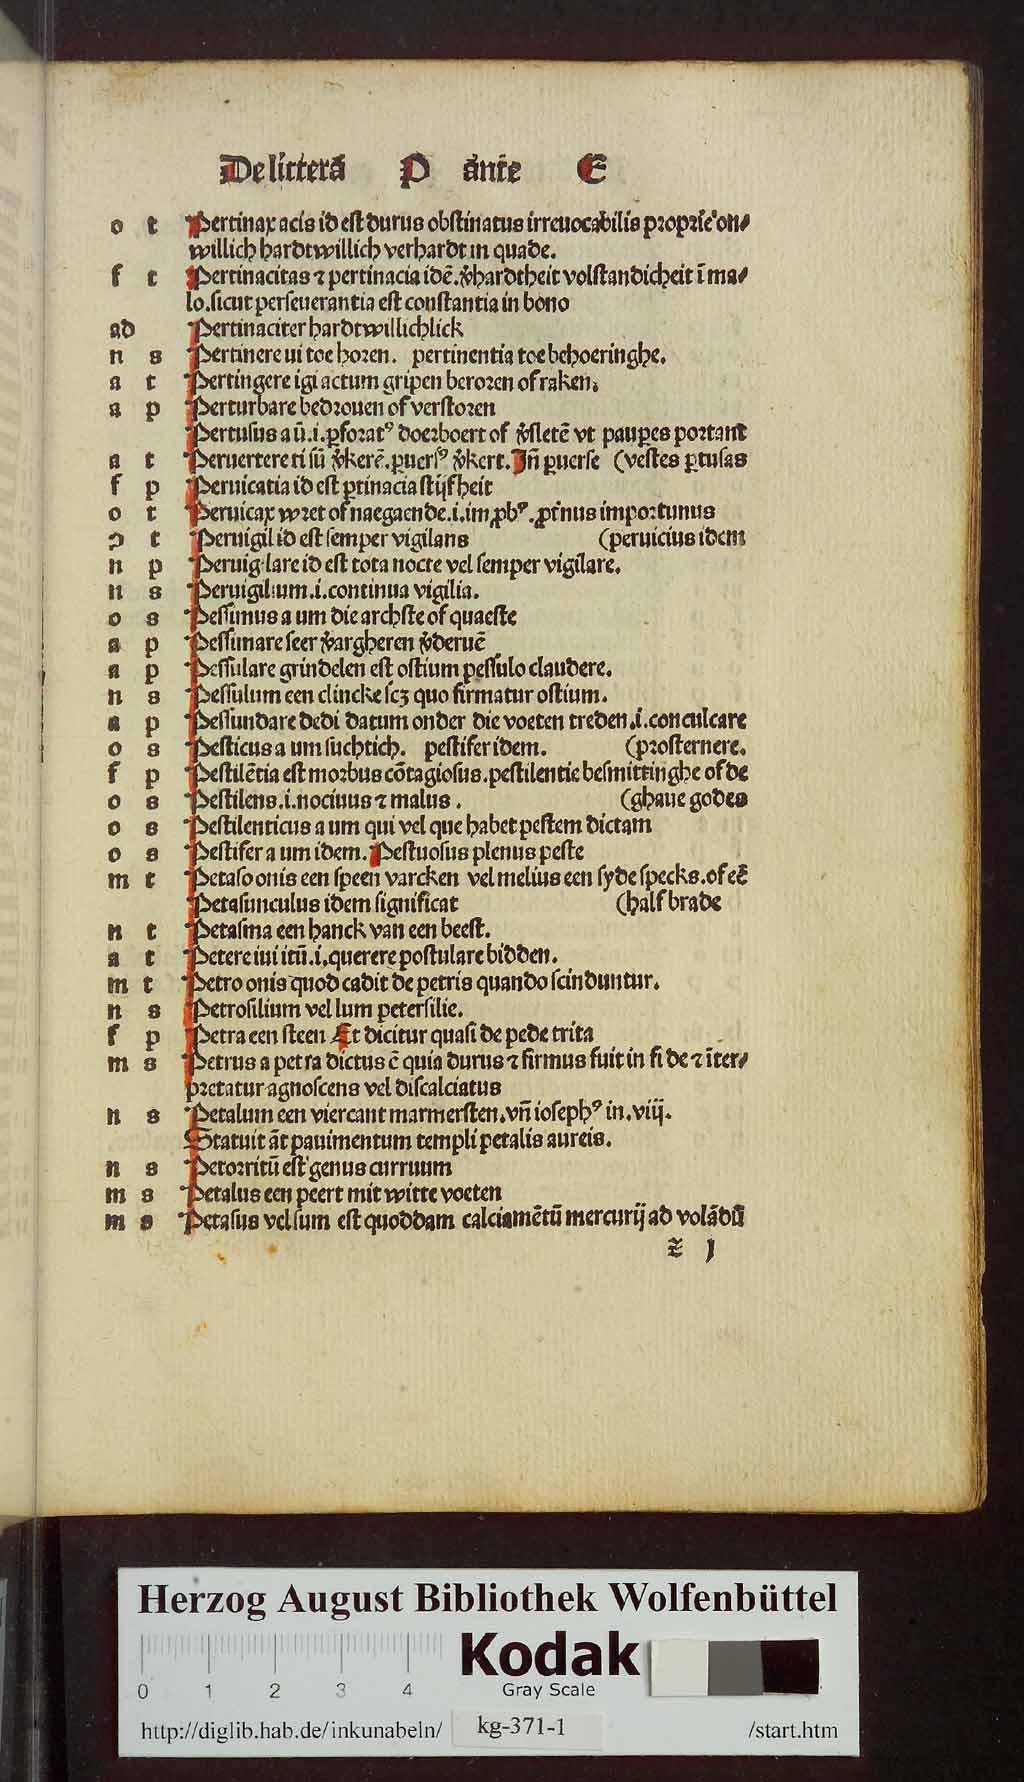 De litterā P ante E
o t Pertinax acis id est durus obstinatus irreuocabilis proprie on⸗
willich hardtwillich verhardt in quade.
f t Pertinacitas ⁊ pertinacia idē. v̄hardtheit volstandicheit ī ma⸗
lo. sicut perseuerantia est constantia in bono
ad Pertinaciter hardtwillichlick
n s Pertinere ui toe horen. pertinentia toe behoeringhe.
a t Pertingere igi actum gripen beroren of raken.
a p Perturbare bedrouen of verstoren
Pertusus a ū .i. ꝑforatꝰ doerboert of v̄sletē vt pauꝑes portant
a t Peruertere ti sū v̄kerē. ꝑuersꝰ v̄kert. Jn̄ ꝑuerse (vestes ꝑtusas
f p Peruicatia id est ꝑtinacia stijfheit
o t Peruicax wret of naegaende .i. imꝓbꝰ. ꝓt̄nus importunus
ɔ t Peruigil id est semper vigilans (peruicius idem
n p Peruigilare id est tota nocte vel semper vigilare.
n s Peruigilium .i. continua vigilia.
o s Pessimus a um die archste of quaeste
a p Pessimare seer v̄argheren v̄deruē
a p Pessulare grindelen est ostium pessulo claudere.
n s Pessulum een clincke scꝫ quo firmatur ostium.
a p Pessundare dedi datum onder die voeten treden .i. conculcare
o s Pesticus a um suchtich. pestifer idem. (prosternere.
f p Pestilētia est morbus cōtagiosus. pestilentie besmittinghe of de
o s Pestilens .i. nociuus ⁊ malus. (ghaue godes
o s Pestilenticus a um qui vel que habet pestem dictam
o s Pestifer a um idem. Pestuosus plenus peste
m t Petaso onis een speen varcken vel melius een syde specks. of eē
Petasunculus idem significat (half brade
n t Petasma een hanck van een beest.
a t Petere iui itū .i. querere postulare bidden.
m t Petro onis quod cadit de petris quando scinduntur.
n s Petrosilium vel lum petersilie.
f p Petra een steen Et dicitur quasi de pede trita
m s Petrus a petra dictus ē quia durus ⁊ firmus fuit in fide ⁊ īter⸗
pretatur agnoscens vel discalciatus
n s Petalum een viercant marmersten. vn̄ iosephꝰ in. viij.
Statuit āt pauimentum templi petalis aureis.
n s Petorritū est genus curruum
m s Petalus een peert mit witte voeten
m s Petasus vel sum est quoddam calciamētū mercurij ad volādū
z̄ j
Herzog August Bibliothek Wolfenbüttel
Kodak
Gray Scale
0 1 2 3 4
http://diglib.hab.de/inkunabeln/ kg-371-1 /start.htm